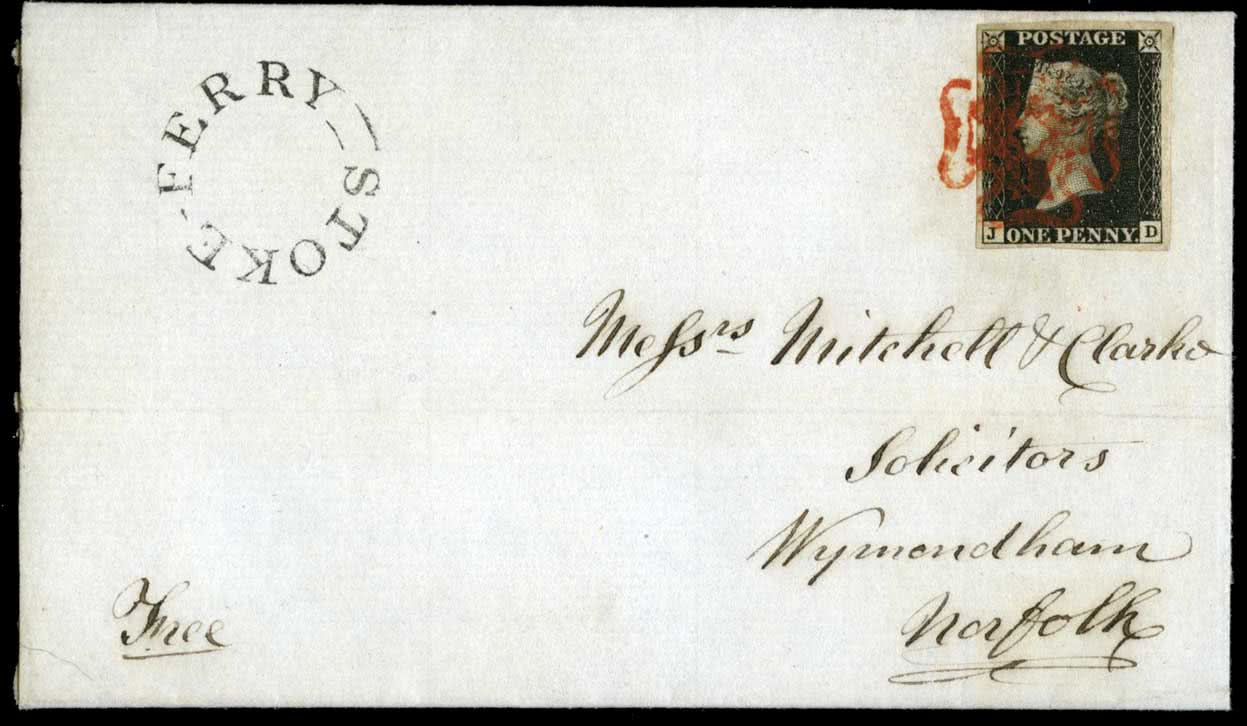 STOKE-FERRY
POSTAGE
J ONE PENNY. D
Messrs Mitchell & Clarke
Solicitors
Wymondham
Norfolk
Free